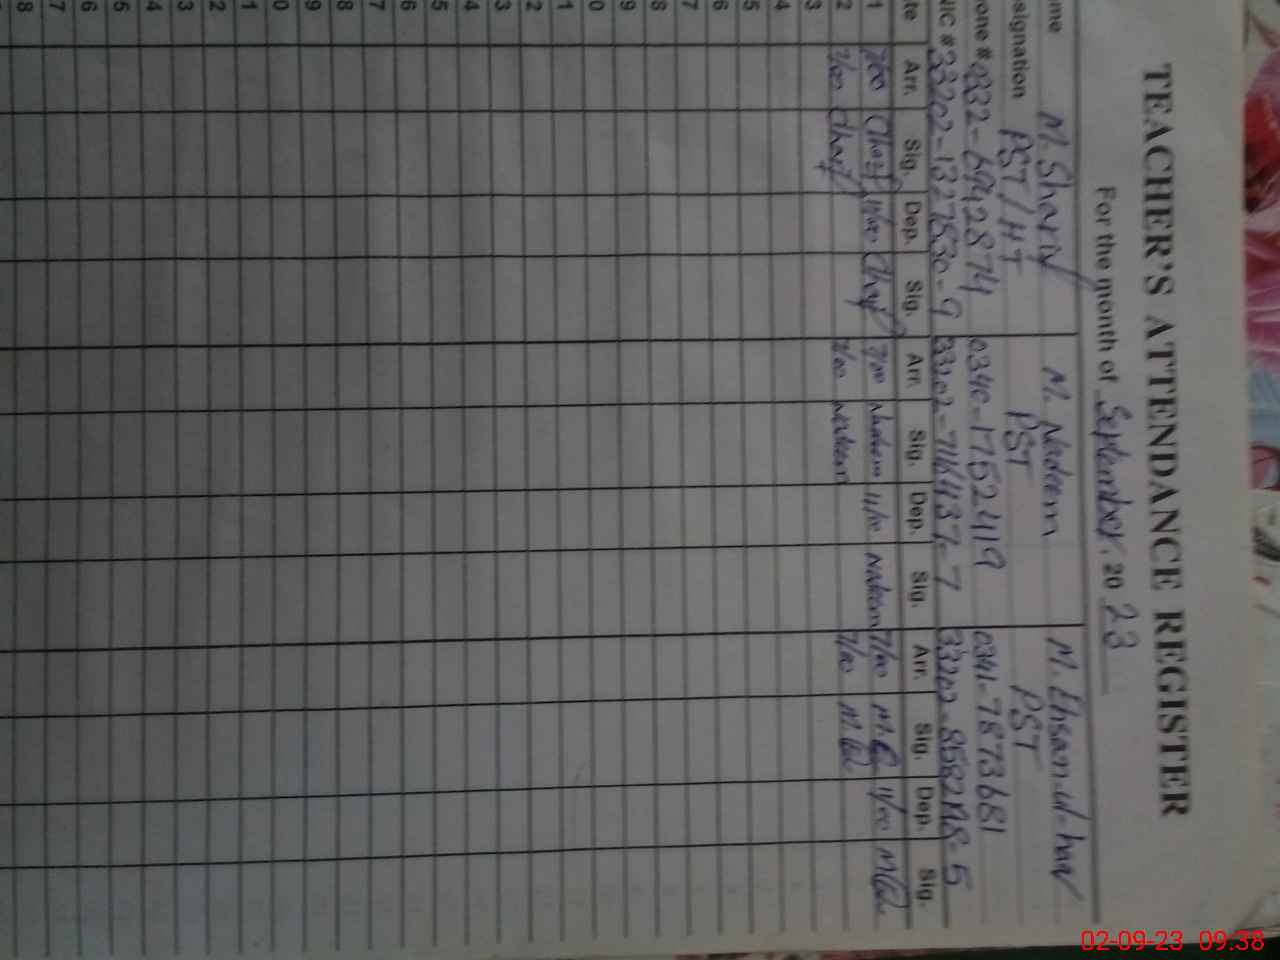 TEACHER'S ATTENDANCE REGISTER
For the month of September, 20 23
me M. Sharif M. Nadeem M. Ehsan-ul-haq
signation PST/HT PST PST
one # 0332-6942874 0340-1752419 0341-7873681
NIC # 33202-1327830-9 33202-7116437-7
te Arr. Sig. Dep. Sig. Arr. Sig. Dep. Sig. Arr. Sig. Dep. Sig.
1 7/00 Sharif 11/00 Sharif 7/00 Nadeem 11/00 Nadeem 7/00 11/00
2 7/00 Sharif 7/00 Nadeem 7/00
3
4
5
6
7
8
9
0
1
2
3
4
5
6
7
8
9
0
1
2
3
4
5
6
7
8
02-09-23 09:38